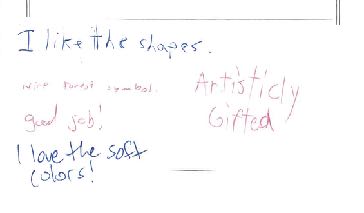 I like the shapes.
nice forest symbol.
good job!
Artisticly
Gifted
I love the soft
colors!